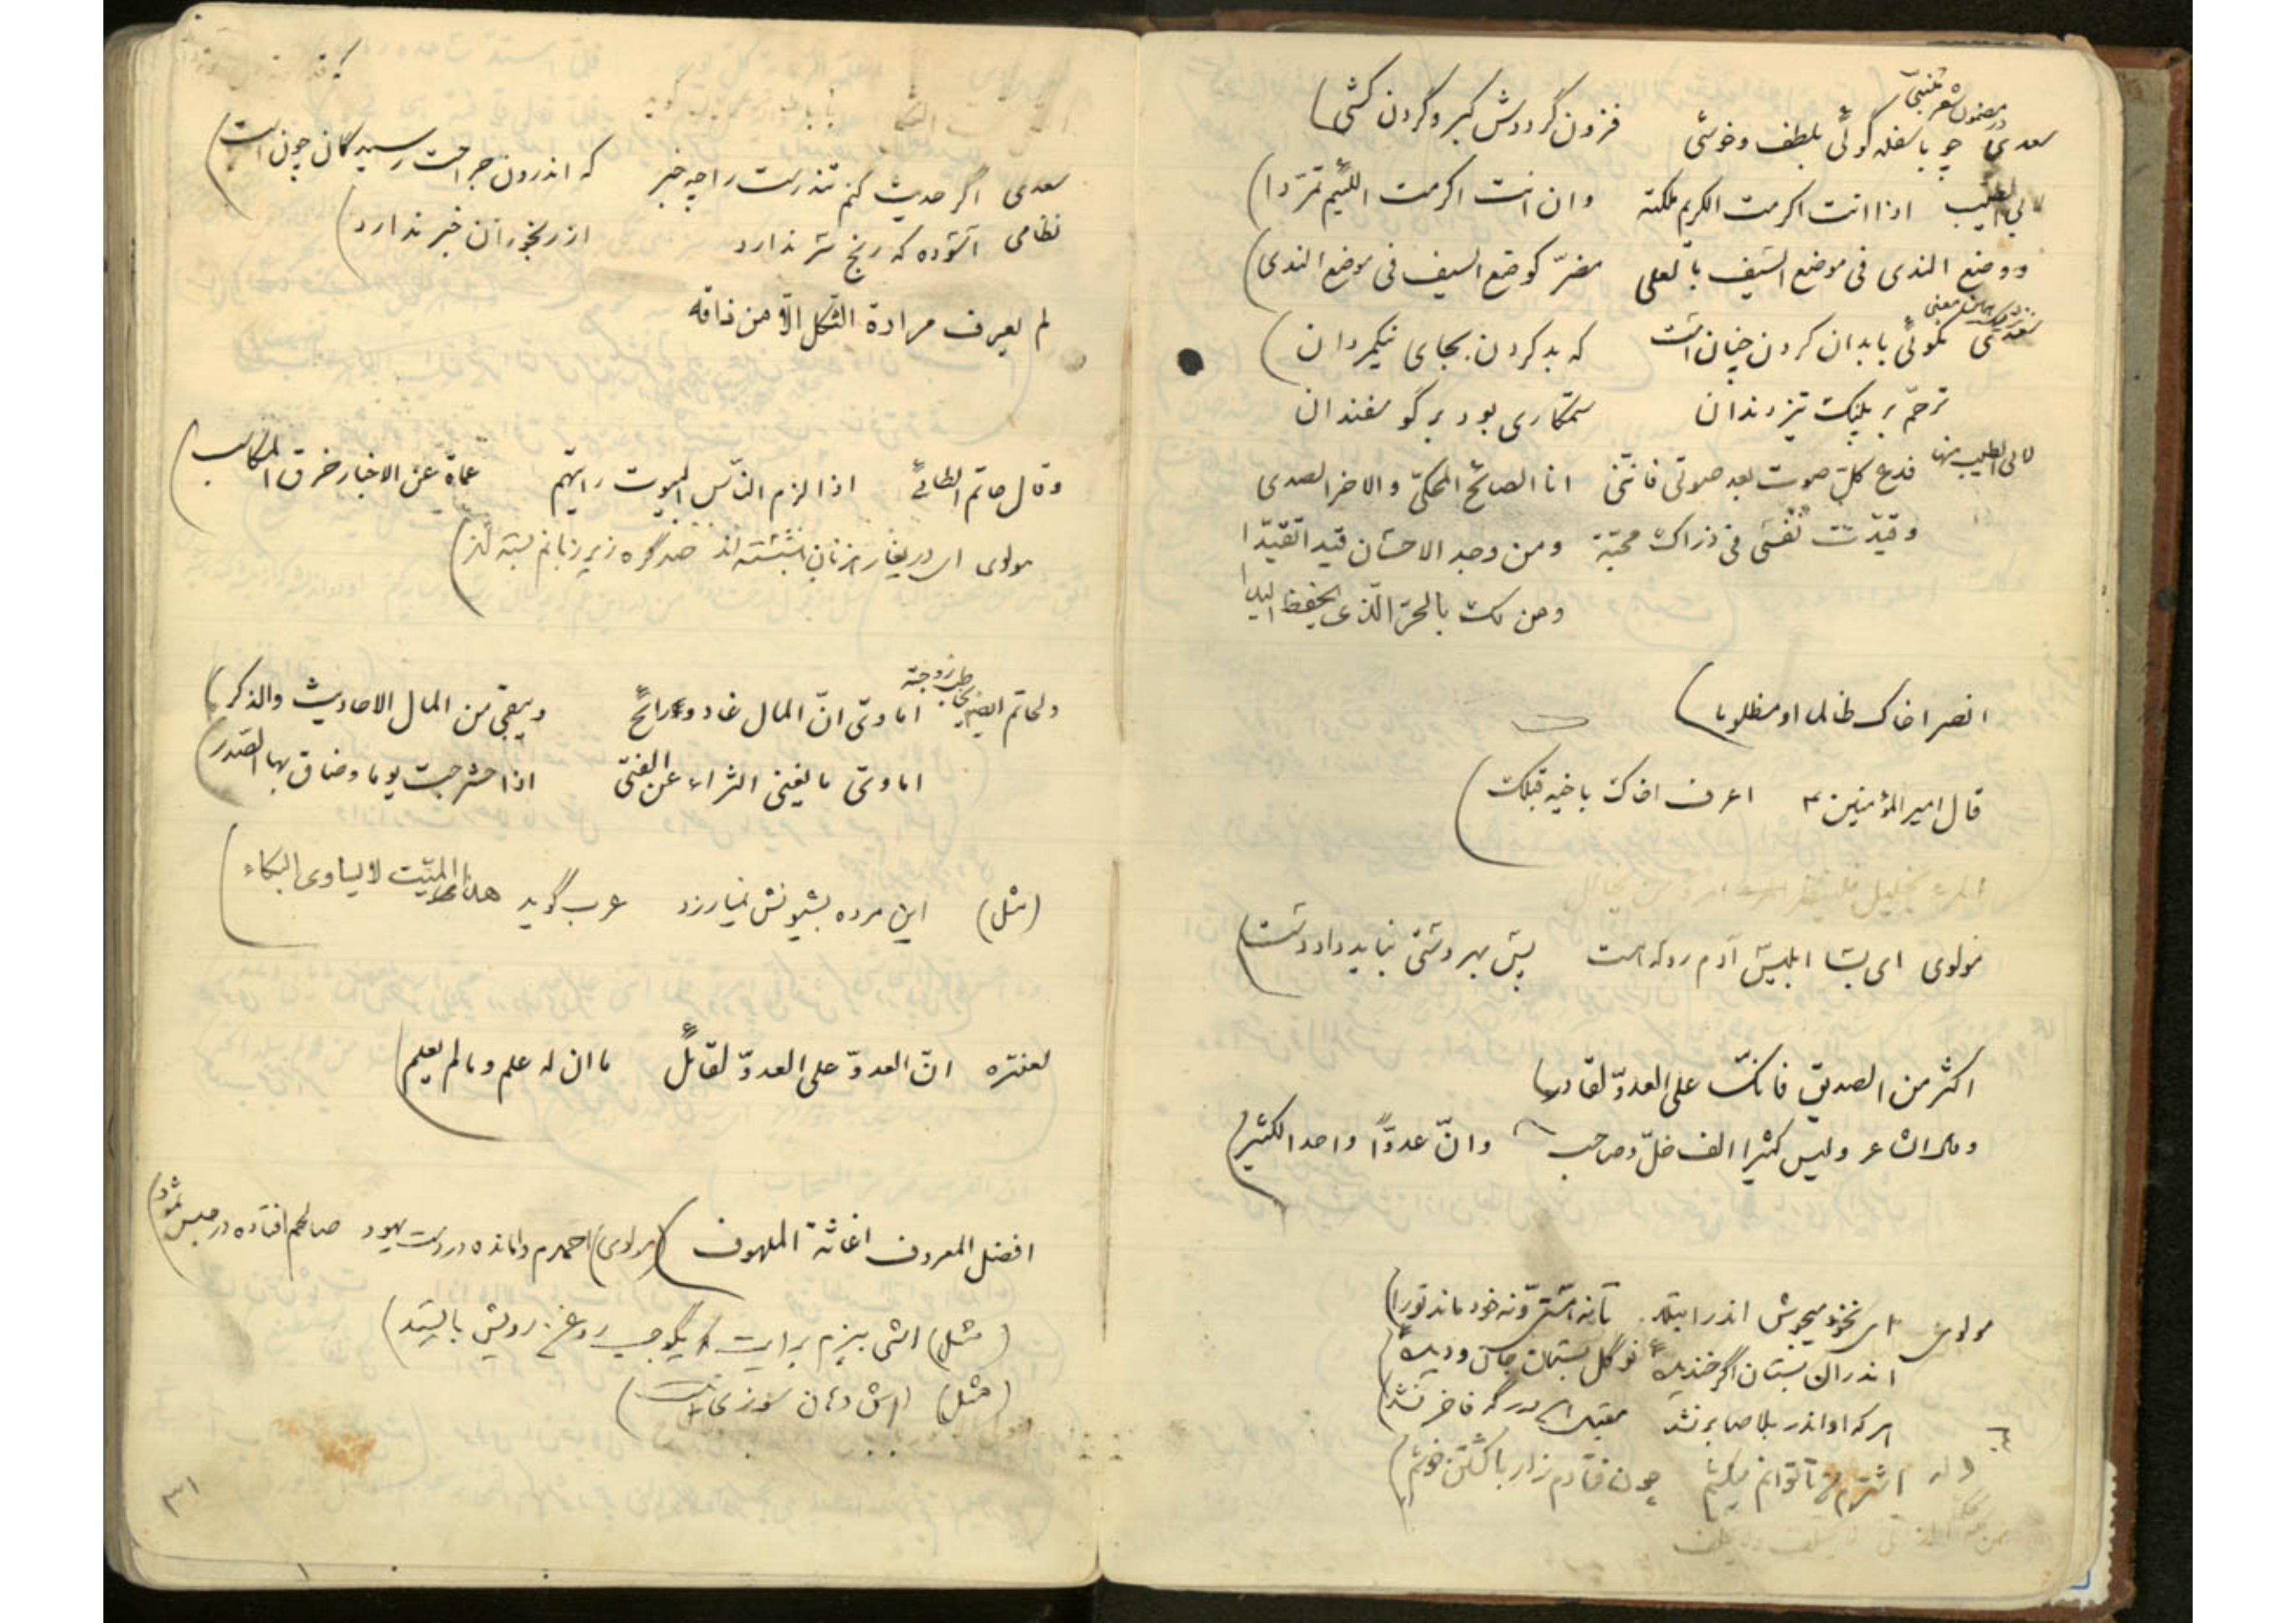 در مضمون شعر متنبی
سعدی چو با سفله گوئی بلطف و خوشی فزون گرددش کبر و گردن کشی
لابی الطیب اذا انت اکرمت الکریم ملکته وان انت اکرمت اللئیم تمرّدا
ووضع الندی فی موضع السّیف بالعلی مضرّ کوضع السیف فی موضع الندی
سعدی نکوئی بابدان کردن چنان است که بد کردن بجای نیکمردان
ترحّم بر پلنگ تیز دندان ستمکاری بود بر گوسفندان
لابی الطیب منها فدع کلّ صوت بعد صوتی فانّنی انا الصائح المحکیّ والاخر الصدی
وقیّدت نفسی فی ذراک محبّة ومن وجد الاحسان قیدا تقیّدا
ومن لک بالحرّ الّذی یحفظ الیدا
انصر اخاک ظالما او مظلوما
قال امیر المؤمنین ع اعرف اخاک باخیه قبلک
مولوی ای بسا ابلیس آدم رو که هست پس بهر دستی نباید داد دست
اکثر من الصدیق فانّک علی العدوّ لقادر
وقال الشاعر ولیس کثیرا الف خلّ وصاحب وانّ عدوّاً واحدا لکثیر
مولوی ای نخود میجوش اندر ابتلا تا نه هستی و نه خود ماند تو را
اندر ان بستان اگر خندیدهٔ تو گل بستان جان و دیدهٔ
هر که او اندر بلا صابر نشد مقبل این درگه فاخر نشد
وله اشترم من تا توانم میکشم چون فتادم زار با کشتن خوشم
سعدی اگر حدیث کنم تندرست را چه خبر که اندرون جراحت رسیدگان چون است
نظامی آسوده که رنج بر ندارد از رنجوران خبر ندارد
لم یعرف مرارة الثّکل الاّ من ذاقه
وقال حاتم الطائی اذا لزم النّاس البیوت رایتهم عماة عن الاخبار خرق المکاسب
مولوی ای دریغا رهزنان بنشسته اند صد گره زیر زبانم بسته اند
ولحاتم ایضا یخاطب زوجته اماویّ انّ المال غاد ورائح ویبقی من المال الاحادیث والذکر
اماویّ ما یغنی الثراء عن الفتی اذا حشرجت یوما وضاق بها الصّدر
(مثل) این مرده بشیونش نمیارزد عرب گوید هذا المیّت لا یساوی البکاء
لعنتره انّ العدوّ علی العدوّ لقائل ما ان له علم وما لم یعلم
افضل المعروف اغاثة الملهوف (مولوی) احمدم وامانده در دست یهود صالحم افتاده در حبس ثمود
(مثل) اشی بپزم برایت یک وجب روغن رویش بایستد
(مثل) اش دهان سوزی نیست
۳۱